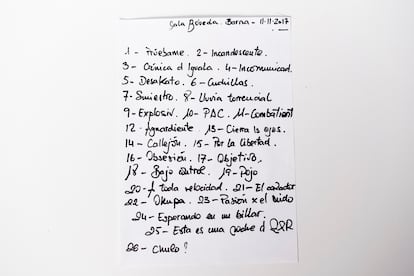 Sala Bóveda. Barna - 11-11-2017
1 - Pruébame. 2 - Incandescente.
3 - Crónica d Iguala. 4 - Incomunicad.
5 - Desakato. 6 - Cuchillas.
7 - Siniestro. 8 - Lluvia torrencial
9 - Explosiv. 10 - PAC. 11 - Combatient
12 - Aguardiente. 13 - Cierra ls ojos.
14 - Callejón. 15 - Por la libertad.
16 - Obsesión. 17 - Objetivo.
18 - Bajo control. 19 - Rojo
20 - A toda velocidad. 21 - El cazador
22 - Okupa. 23 - Pasión x el ruido
24 - Esperando en un billar.
25 - Esta es una noche d R&R
26 - Chulo?